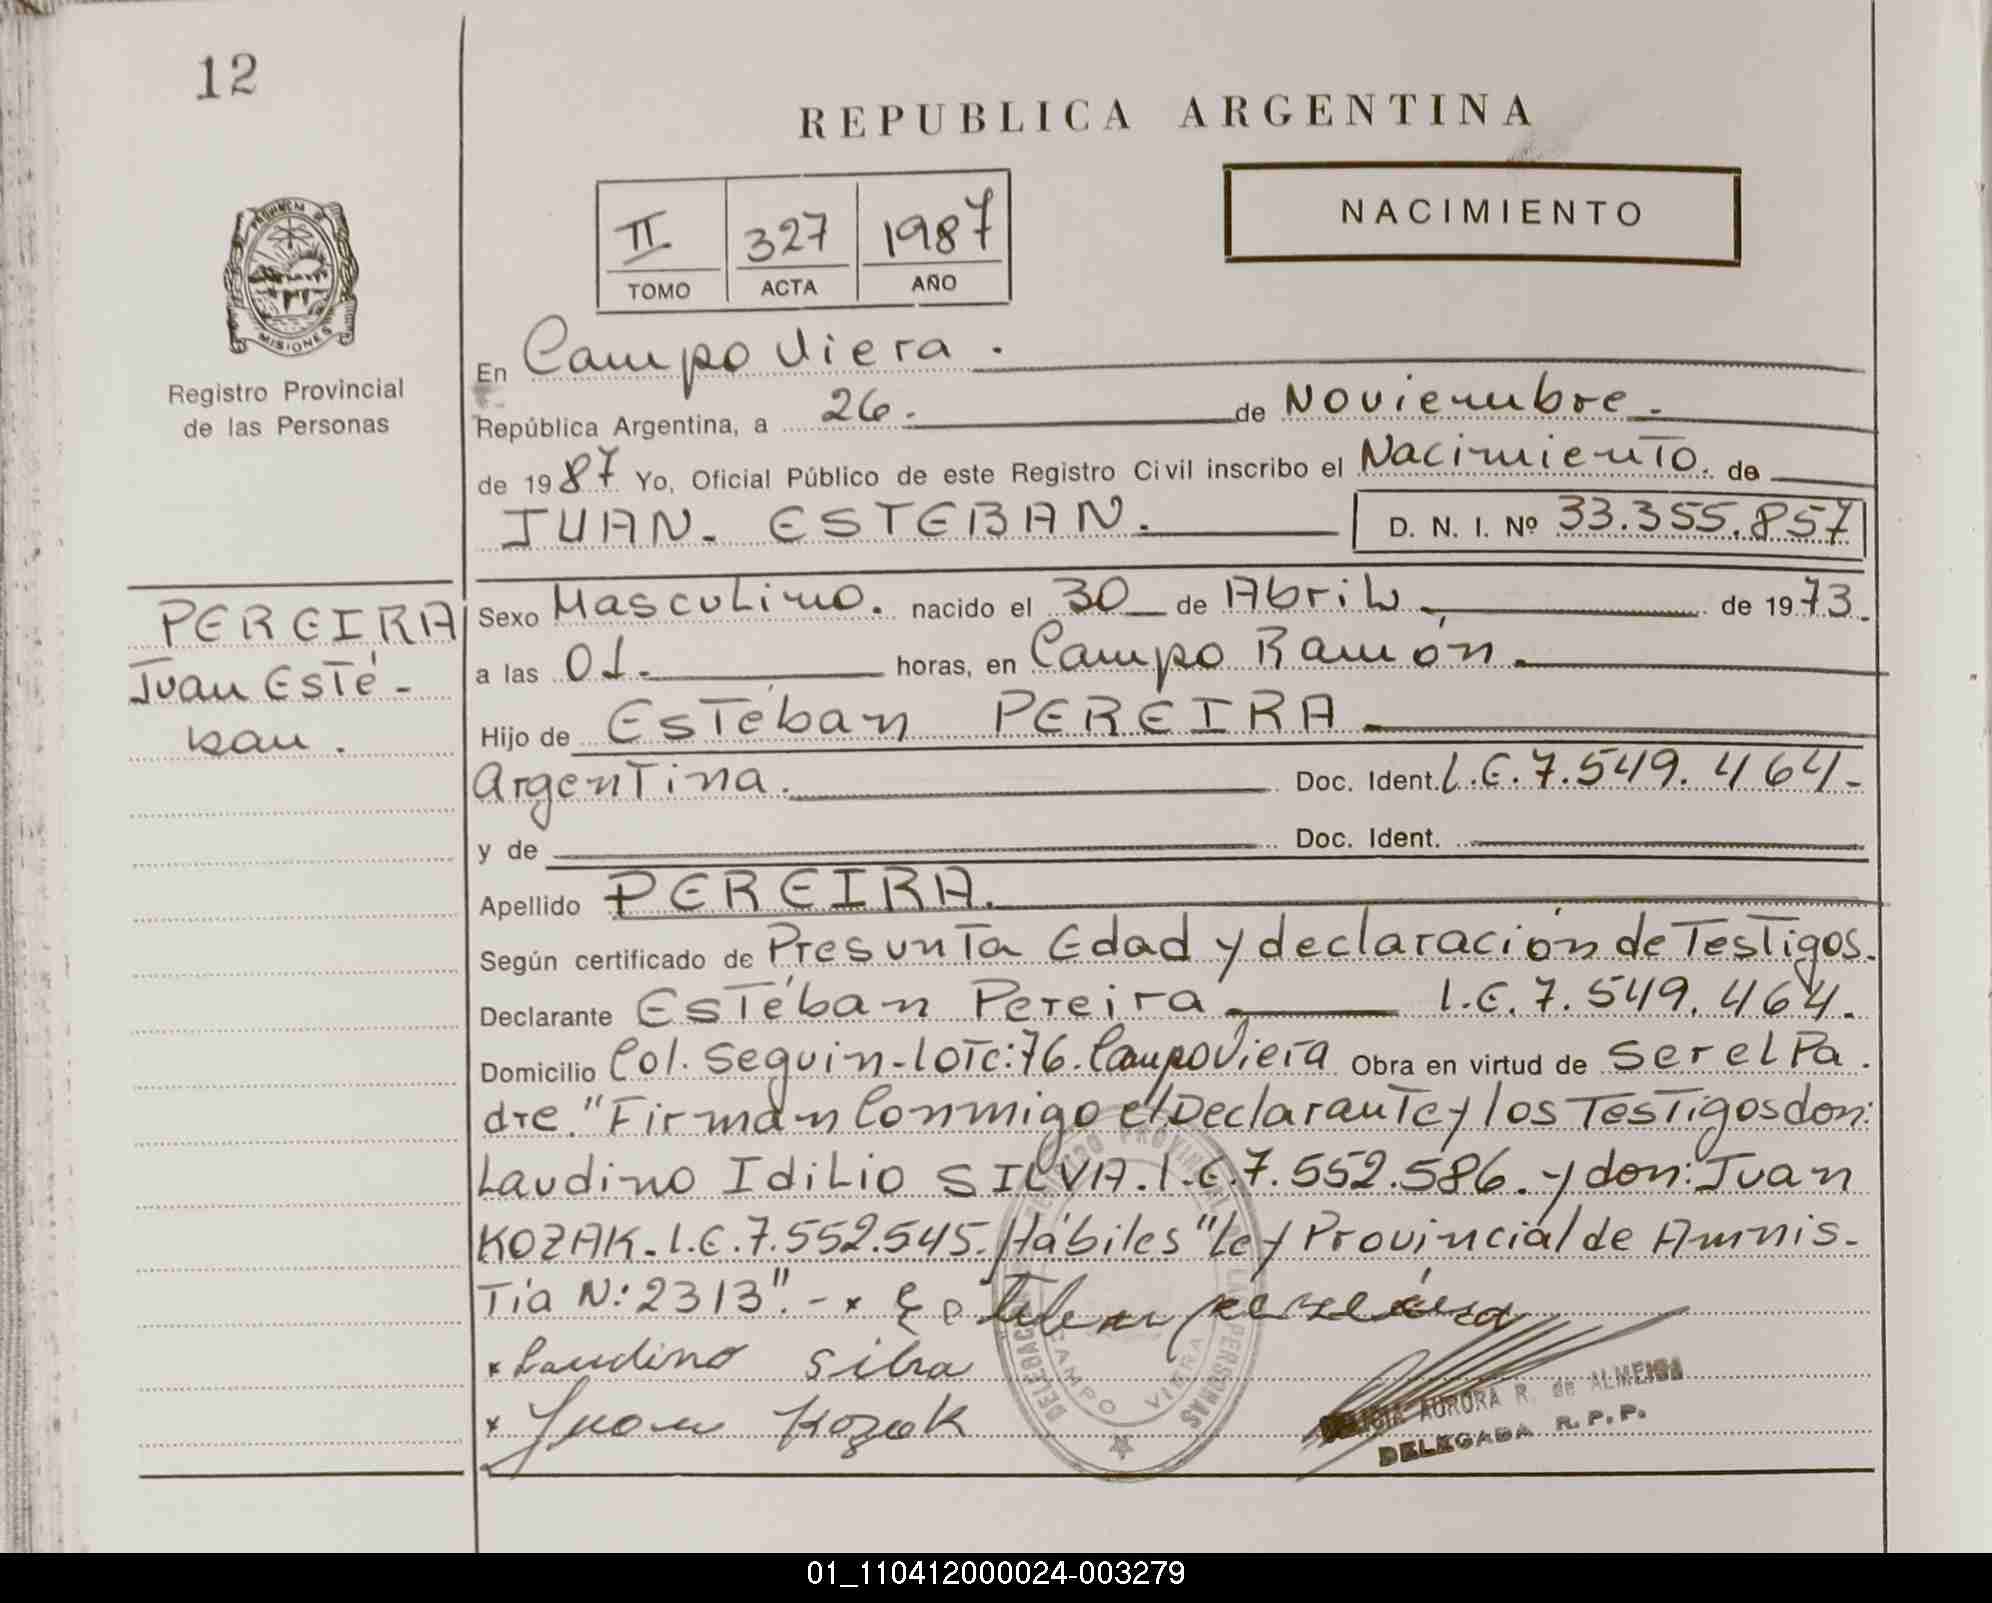 12
REPUBLICA ARGENTINA
NACIMIENTO
II 327 1987
TOMO ACTA AÑO
MISIONES
Registro Provincial
de las Personas
En Campo Viera.
República Argentina, a 26. de Noviembre.
de 1987 Yo, Oficial Público de este Registro Civil inscribo el Nacimiento. de
JUAN. ESTEBAN. D. N. I. Nº 33.355.857
PEREIRA
Juan Esté-
ban.
Sexo Masculino. nacido el 30 de Abril de 1973.
a las 01. horas, en Campo Ramón.
Hijo de Estéban PEREIRA.
Argentina. Doc. Ident. L.E.7.549.464-
y de Doc. Ident.
Apellido PEREIRA.
Según certificado de Presunta Edad y declaración de Testigos.
Declarante Estéban Pereira L.E.7.549.464.
Domicilio Col. Seguin-Lote:76. Campo Viera Obra en virtud de Ser el Pa.
dre."Firman Conmigo el Declarante y los Testigos don:
Laudino Idilio SILVA.L.E.7.552.586. y don: Juan
KOZAK.L.E.7.552.545. Hábiles "Ley Provincial de Amnis-
Tía N:2313".-x Esteban pereira
x Laudino Silva
x Juan Kozak
DELEGACION REGISTRO PROVINCIAL DE LAS PERSONAS
CAMPO VIERA
DELICIA AURORA R. de ALMEIDA
DELEGADA R.P.P.
01_110412000024-003279